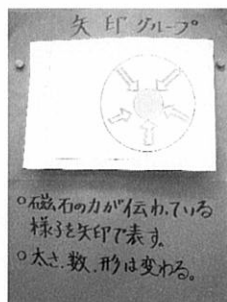 矢印グループ
○磁石の力が伝わっている
様子を矢印で表す。
○太さ、数、形は変わる。